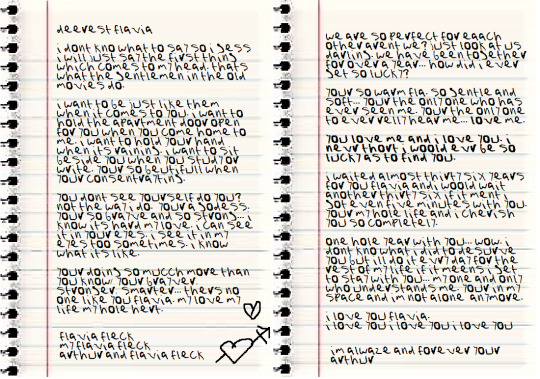 deerest flavia
i dont kno what to say so i gess
i will just say the first thing
which comes to mead. thats
what the gentlemen in the old
movies do.
i want to be just like them
when it comes to you. i want to
hold the apartment door open
for you when you come home to
me. i want to hold your hand
when its raining. i want to sit
beside you when you study or
write. your so beutifull when
your consentrating.
you dont see yourself do you?
not the way i do. your a godess.
your so brayve and so strong... i
know its hard my love. i can see
it in your eyes. i see it in my
eyes too sometimes. i know
what its like.
your doing so mucch more than
you know. your brayver
stronger. smarter... theres no
one like you flavia. my love my
life my hole hert.
flavia fleck
my flavia fleck
arthur and flavia fleck
we are so perfect for eaach
other arent we? just look at us
darling. we have been together
for over a year... how did i ever
get so lucky?
your so warm fla. so gentle and
soft... your the only one who has
ever seen me. your the only one
to ever relly hear me... love me.
you love me and i love you. i
never thort i would ever be so
lucky as to find you.
i waited almost thirty six years
for you flavia and i would wait
another thirty six if it ment i
got even five minutes with you.
your my hole life and i cherish
you so completely.
one hole year with you... wow. i
dont know what i did to deserve
you but ill do it every day for the
rest of my life if it meens i get
to stay with you... my one and only
who understands me. your in my
space and im not alone anymore.
i love you flavia.
i love you i love you i love you
im alwaze and forever your
arthur